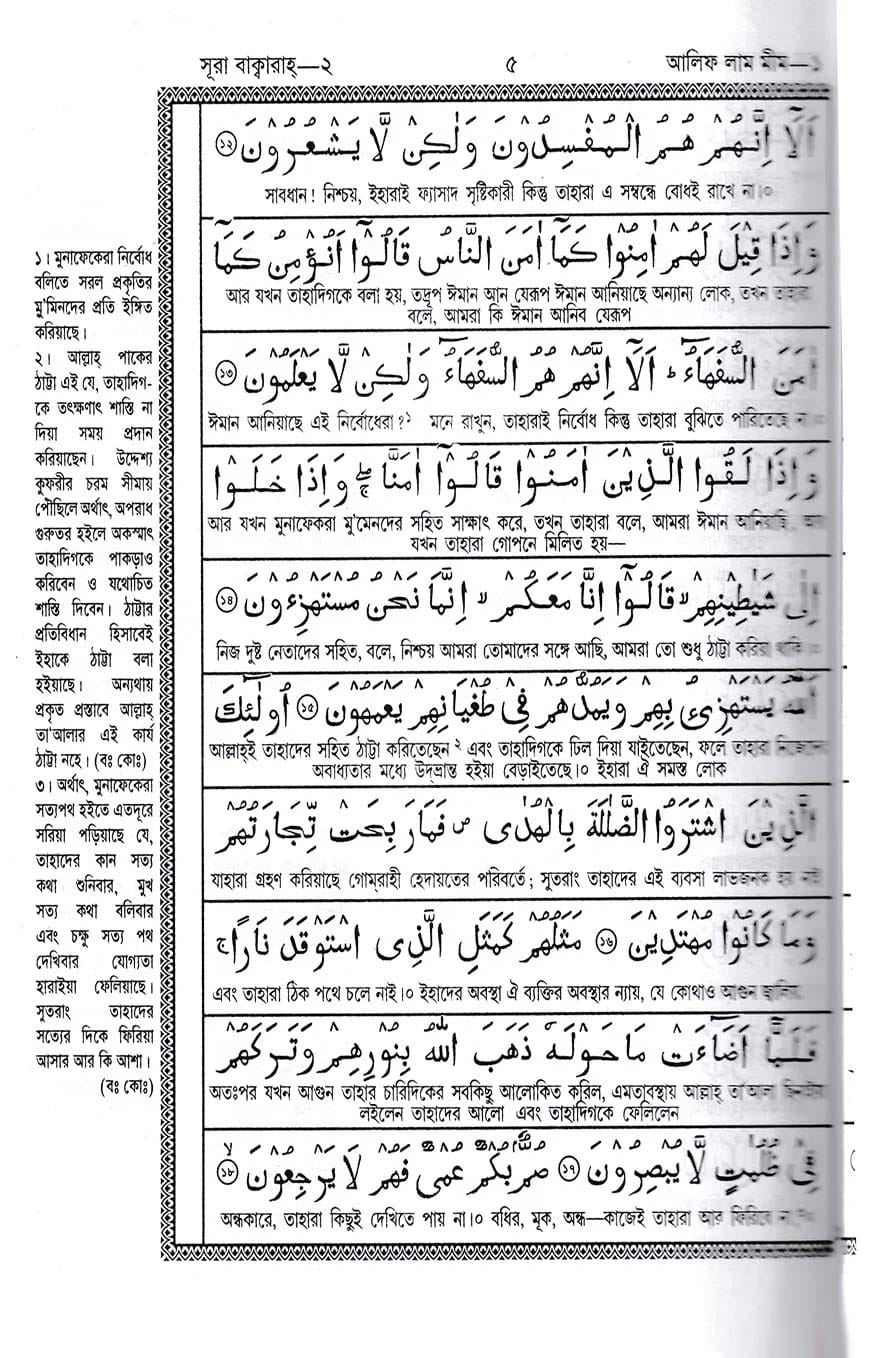 সূরা বাক্বারাহ্—২ ৫ আলিফ লাম মীম—১
اَلَاۤ اِنَّهُمْ هُمُ الْمُفْسِدُوْنَ وَلٰكِنْ لَّا يَشْعُرُوْنَ ۝১২
সাবধান! নিশ্চয়, ইহারাই ফ্যাসাদ সৃষ্টিকারী কিন্তু তাহারা এ সম্বন্ধে বোধই রাখে না।০
وَاِذَا قِيْلَ لَهُمْ اٰمِنُوْا كَمَاۤ اٰمَنَ النَّاسُ قَالُوْۤا اَنُؤْمِنُ كَمَاۤ
আর যখন তাহাদিগকে বলা হয়, তদ্রূপ ঈমান আন যেরূপ ঈমান আনিয়াছে অন্যান্য লোক, তখন তাহারা
বলে, আমরা কি ঈমান আনিব যেরূপ
اٰمَنَ السُّفَهَآءُ ؕ اَلَاۤ اِنَّهُمْ هُمُ السُّفَهَآءُ وَلٰكِنْ لَّا يَعْلَمُوْنَ ۝১৩
ঈমান আনিয়াছে এই নির্বোধেরা?১ মনে রাখুন, তাহারাই নির্বোধ কিন্তু তাহারা বুঝিতে পারিতেছে না।
وَاِذَا لَقُوا الَّذِيْنَ اٰمَنُوْا قَالُوْۤا اٰمَنَّا ۖۚ وَاِذَا خَلَوْا
আর যখন মুনাফেকরা মু'মেনদের সহিত সাক্ষাৎ করে, তখন তাহারা বলে, আমরা ঈমান আনিয়াছি, আর
যখন তাহারা গোপনে মিলিত হয়—
اِلٰى شَيٰطِيْنِهِمْ ۙ قَالُوْۤا اِنَّا مَعَكُمْ ۙ اِنَّمَا نَحْنُ مُسْتَهْزِءُوْنَ ۝১৪
নিজ দুষ্ট নেতাদের সহিত, বলে, নিশ্চয় আমরা তোমাদের সঙ্গে আছি, আমরা তো শুধু ঠাট্টা করিয়া থাকি
اَللّٰهُ يَسْتَهْزِئُ بِهِمْ وَيَمُدُّهُمْ فِيْ طُغْيَانِهِمْ يَعْمَهُوْنَ ۝১৫ اُولٰٓئِكَ
আল্লাহ্‌ই তাহাদের সহিত ঠাট্টা করিতেছেন ২ এবং তাহাদিগকে ঢিল দিয়া যাইতেছেন, ফলে তাহারা নিজেদের
অবাধ্যতার মধ্যে উদ্‌ভ্রান্ত হইয়া বেড়াইতেছে।০ ইহারা ঐ সমস্ত লোক
الَّذِيْنَ اشْتَرَوُا الضَّلٰلَةَ بِالْهُدٰى ۪ فَمَا رَبِحَتْ تِّجَارَتُهُمْ
যাহারা গ্রহণ করিয়াছে গোমরাহী হেদায়তের পরিবর্তে; সুতরাং তাহাদের এই ব্যবসা লাভজনক হয় নাই
وَمَا كَانُوْا مُهْتَدِيْنَ ۝১৬ مَثَلُهُمْ كَمَثَلِ الَّذِى اسْتَوْقَدَ نَارًا ۚ
এবং তাহারা ঠিক পথে চলে নাই।০ ইহাদের অবস্থা ঐ ব্যক্তির অবস্থার ন্যায়, যে কোথাও আগুন জ্বালিয়
فَلَمَّاۤ اَضَآءَتْ مَا حَوْلَهٗ ذَهَبَ اللّٰهُ بِنُوْرِهِمْ وَتَرَكَهُمْ
অতঃপর যখন আগুন তাহার চারিদিকের সবকিছু আলোকিত করিল, এমতাবস্থায় আল্লাহ্ তা'আলা ছিনাইয়া
লইলেন তাহাদের আলো এবং তাহাদিগকে ফেলিলেন
فِيْ ظُلُمٰتٍ لَّا يُبْصِرُوْنَ ۝১৭ صُمٌّۢ بُكْمٌ عُمْيٌ فَهُمْ لَا يَرْجِعُوْنَ ۝১৮
অন্ধকারে, তাহারা কিছুই দেখিতে পায় না।০ বধির, মূক, অন্ধ—কাজেই তাহারা আর ফিরিবে না।
১। মুনাফেকেরা নির্বোধ
বলিতে সরল প্রকৃতির
মু'মিনদের প্রতি ইঙ্গিত
করিয়াছে।
২। আল্লাহ্ পাকের
ঠাট্টা এই যে, তাহাদিগ-
কে তৎক্ষণাৎ শাস্তি না
দিয়া সময় প্রদান
করিয়াছেন। উদ্দেশ্য
কুফরীর চরম সীমায়
পৌছিলে অর্থাৎ, অপরাধ
গুরুতর হইলে অকস্মাৎ
তাহাদিগকে পাকড়াও
করিবেন ও যথোচিত
শাস্তি দিবেন। ঠাট্টার
প্রতিবিধান হিসাবেই
ইহাকে ঠাট্টা বলা
হইয়াছে। অন্যথায়
প্রকৃত প্রস্তাবে আল্লাহ্
তা'আলার এই কার্য
ঠাট্টা নহে। (বঃ কোঃ)
৩। অর্থাৎ, মুনাফেকেরা
সত্যপথ হইতে এতদূরে
সরিয়া পড়িয়াছে যে,
তাহাদের কান সত্য
কথা শুনিবার, মুখ
সত্য কথা বলিবার
এবং চক্ষু সত্য পথ
দেখিবার যোগ্যতা
হারাইয়া ফেলিয়াছে।
সুতরাং তাহাদের
সত্যের দিকে ফিরিয়া
আসার আর কি আশা।
(বঃ কোঃ)